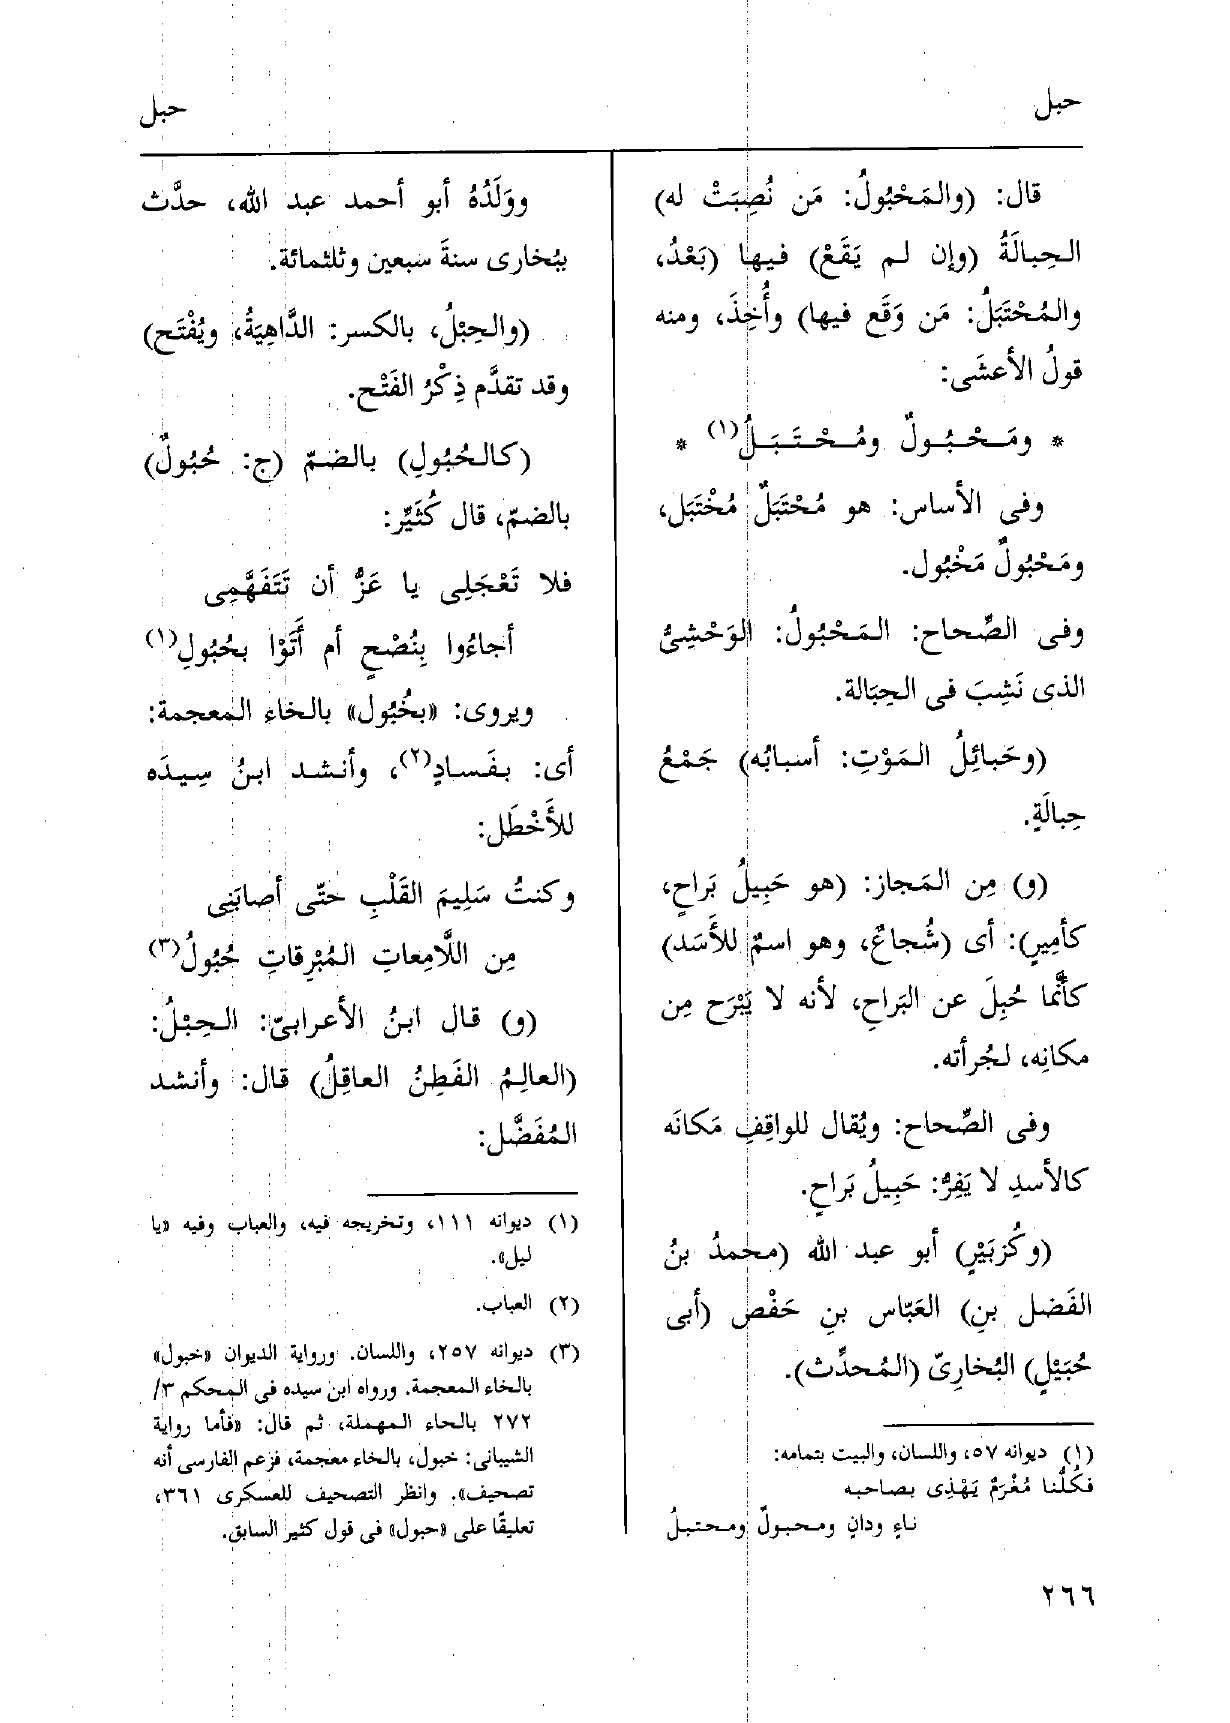 حبل
حبل
قال: (والمَحْبُولُ: مَن نُصِبَتْ له)
الحِبالَةُ (وإن لم يَقَعْ) فيها (بَعْدُ،
والمُحْتَبَلُ: مَن وَقَع فيها) وأُخِذَ، ومنه
قولُ الأعشَى:
* ومَحْبُولٌ ومُحْتَبَلُ(١) *
وفى الأساس: هو مُحْتَبَلٌ مُخْتَبَل،
ومَحْبُولٌ مَخْبُول.
وفى الصِّحاح: المَحْبُولُ: الوَحْشِىُّ
الذى نَشِبَ فى الحِبَالة.
(وحَبائِلُ المَوْتِ: أسبابُه) جَمْعُ
حِبالَةٍ.
(و) مِن المَجاز: (هو حَبِيلُ بَراحٍ،
كأمِيرٍ): أى (شُجاعٌ، وهو اسمٌ للأَسَد)
كأنَّما حُبِلَ عن البَراحِ، لأنه لا يَبْرَح مِن
مكانِه، لجُرأته.
وفى الصِّحاح: ويُقال للواقِفِ مَكانَه
كالأسدِ لا يَفِرُّ: حَبِيلُ بَراحٍ.
(وكُزبَيْرٍ) أبو عبد الله (محمدُ بنُ
الفَضل بنِ) العَبّاس بنِ حَفْص (أبى
حُبَيْلٍ) البُخارِىّ (المُحدِّث).
(١) ديوانه ٥٧، واللسان، والبيت بتمامه:
فكُلُّنا مُغْرَمٌ يَهْذِى بصاحبه
ناءٍ ودانٍ ومحبولٌ ومحتبلُ
٢٦٦
ووَلَدُهُ أبو أحمد عبد الله، حدَّث
ببُخارى سنةَ سبعين وثلثمائة.
(والحِبْلُ، بالكسر: الدَّاهِيَةُ، ويُفْتَح)
وقد تقدَّم ذِكْرُ الفَتْح.
(كالحُبُولِ) بالضمّ (ج: حُبُولٌ)
بالضمّ، قال كُثَيِّر:
فلا تَعْجَلِى يا عَزُّ أن تَتَفَهَّمِى
أجاءُوا بِنُصْحٍ أم أَتَوْا بحُبُولِ(١)
ويروى: «بخُبُول» بالخاء المعجمة:
أى: بفَسادٍ(٢)، وأنشد ابنُ سِيدَه
للأَخْطَل:
وكنتُ سَلِيمَ القَلْبِ حتّى أصابَنِى
مِن اللَّامِعاتِ المُبْرِقاتِ حُبُولُ(٣)
(و) قال ابنُ الأعرابىّ: الحِبْلُ:
(العالِمُ الفَطِنُ العاقِلُ) قال: وأنشد
المُفَضَّل:
(١) ديوانه ١١١، وتخريجه فيه، والعباب وفيه «يا
ليل».
(٢) العباب.
(٣) ديوانه ٢٥٧، واللسان. ورواية الديوان «خبول»
بالخاء المعجمة. ورواه ابن سيده فى المحكم ٣/
٢٧٢ بالحاء المهملة، ثم قال: «فأما رواية
الشيبانى: خبول، بالخاء معجمة، فزعم الفارسى أنه
تصحيف». وانظر التصحيف للعسكرى ٣٦١،
تعليقًا على «حبول» فى قول كثير السابق.